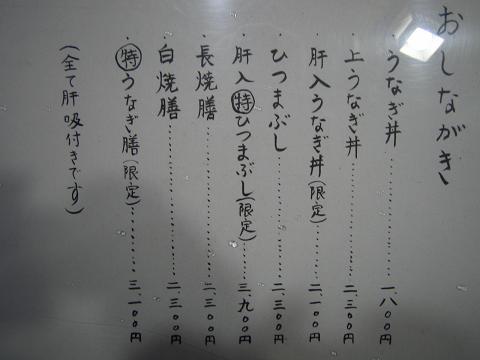 おしながき
・うなぎ丼………一、八〇〇円
・上うなぎ丼………二、三〇〇円
・肝入うなぎ丼(限定)………二、一〇〇円
・ひつまぶし………二、三〇〇円
・肝入㊕ひつまぶし(限定)………三、九〇〇円
・長焼膳………二、三〇〇円
・白焼膳………二、三〇〇円
・㊕うなぎ膳(限定)………三、一〇〇円
(全て肝吸付きです)